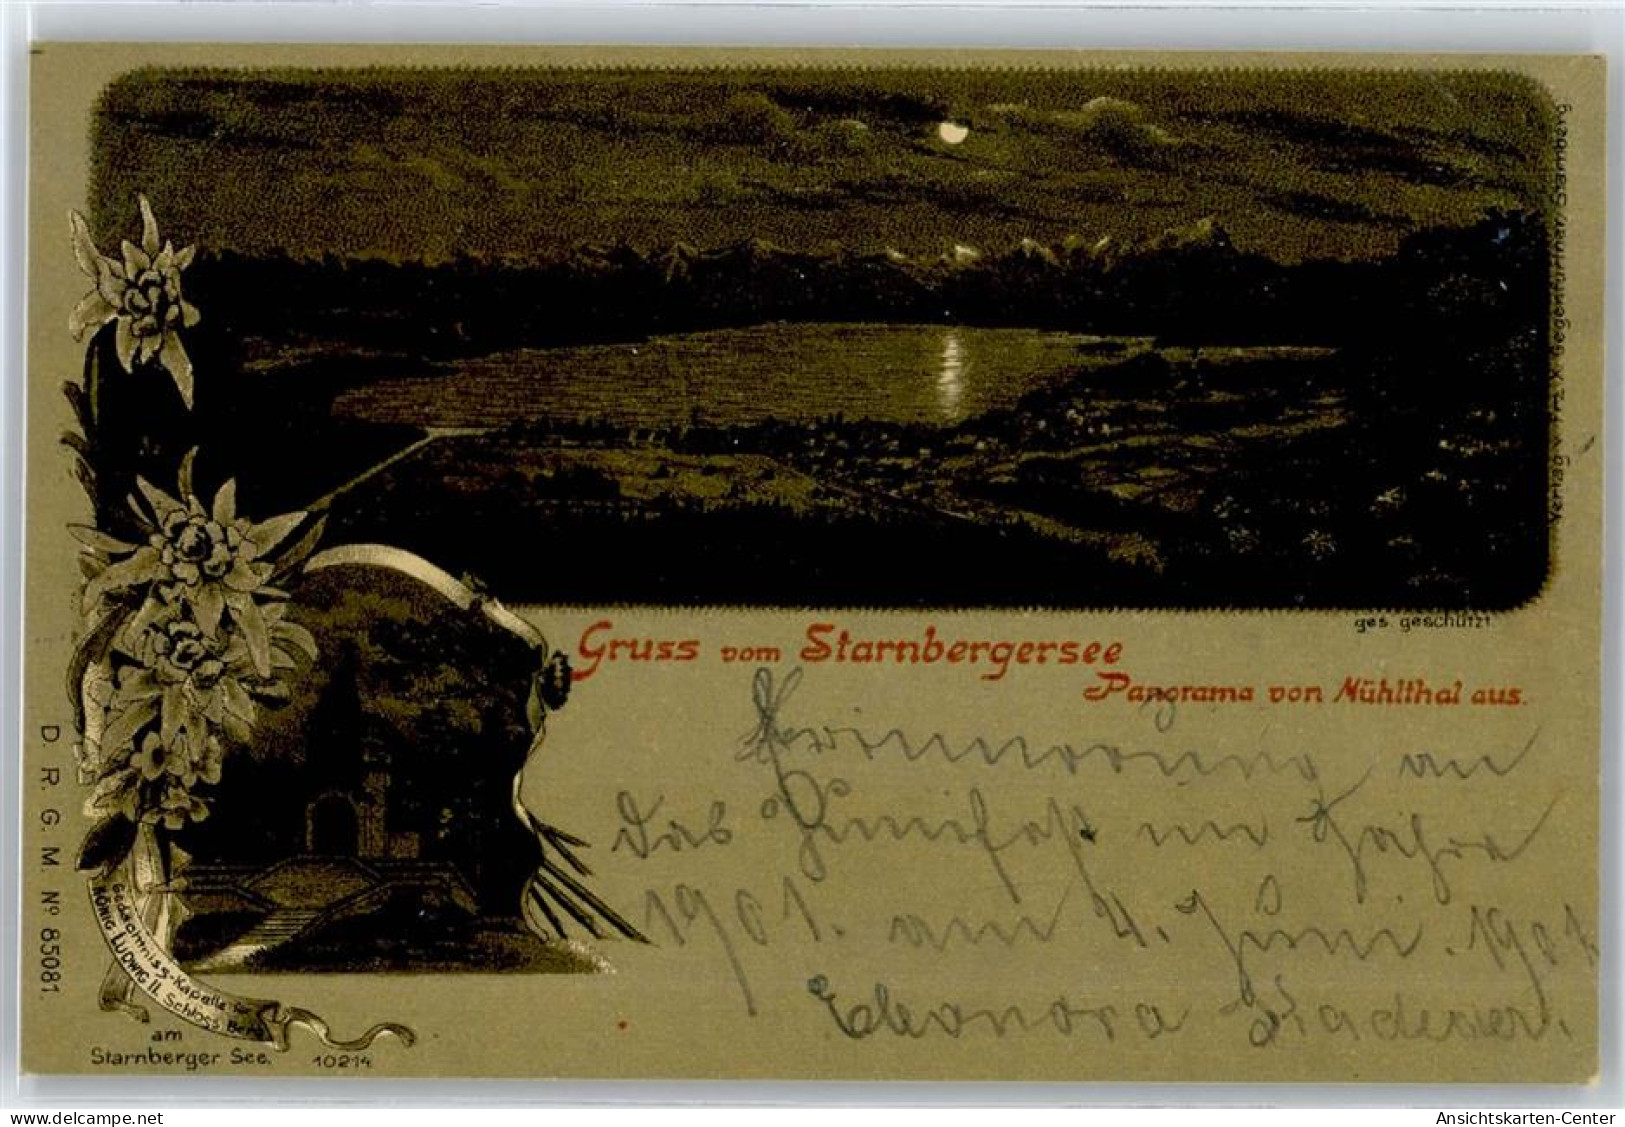 Verlag v. Fr. X. Gegenfurtner, Starnberg
ges. geschützt.
Gruss vom Starnbergersee
Panorama von Mühlthal aus.
Erinnerung an
das Junifest im Jahre
1901. am 4. Juni. 1901.
Eleonora
D. R. G. M. Nº 85081.
Gedächtniss-Kapelle für
König Ludwig II. Schloss Berg
am
Starnberger See.
10214
delcampe.net
Ansichtskarten-Center